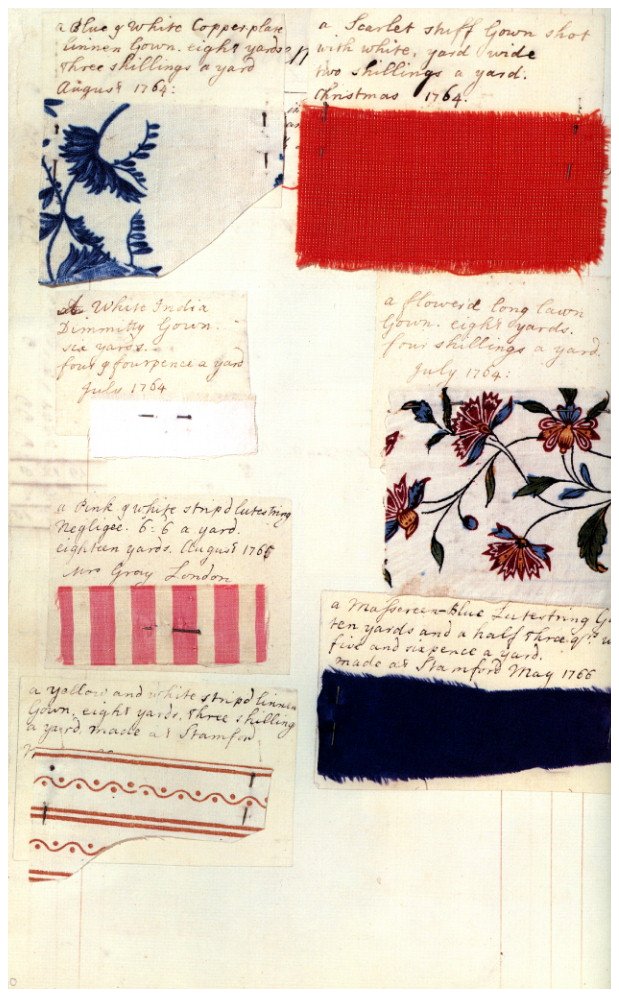 a Blue & White Copperplate
linnen Gown. eight yards
three shillings a yard
August 1764:
a Scarlet stuff Gown shot
with white, yard wide
two shillings a yard.
Christmas 1764.
A White India
Dimmitty Gown.
six yards.
four & fourpence a yard
July 1764
a flowerd long lawn
Gown. eight yards.
four shillings a yard.
July 1764:
a Pink & white stripd lutestring
Negligee. 6=6 a yard.
eighteen yards. August 1765
Mrs Gray London
a Massereen-Blue Lutestring
ten yards and a half three
five and sixpence a yard.
made at Stamford May 1766
a yellow and white stripd linnen
Gown. eight yards. three shilling
a yard. made at Stamford